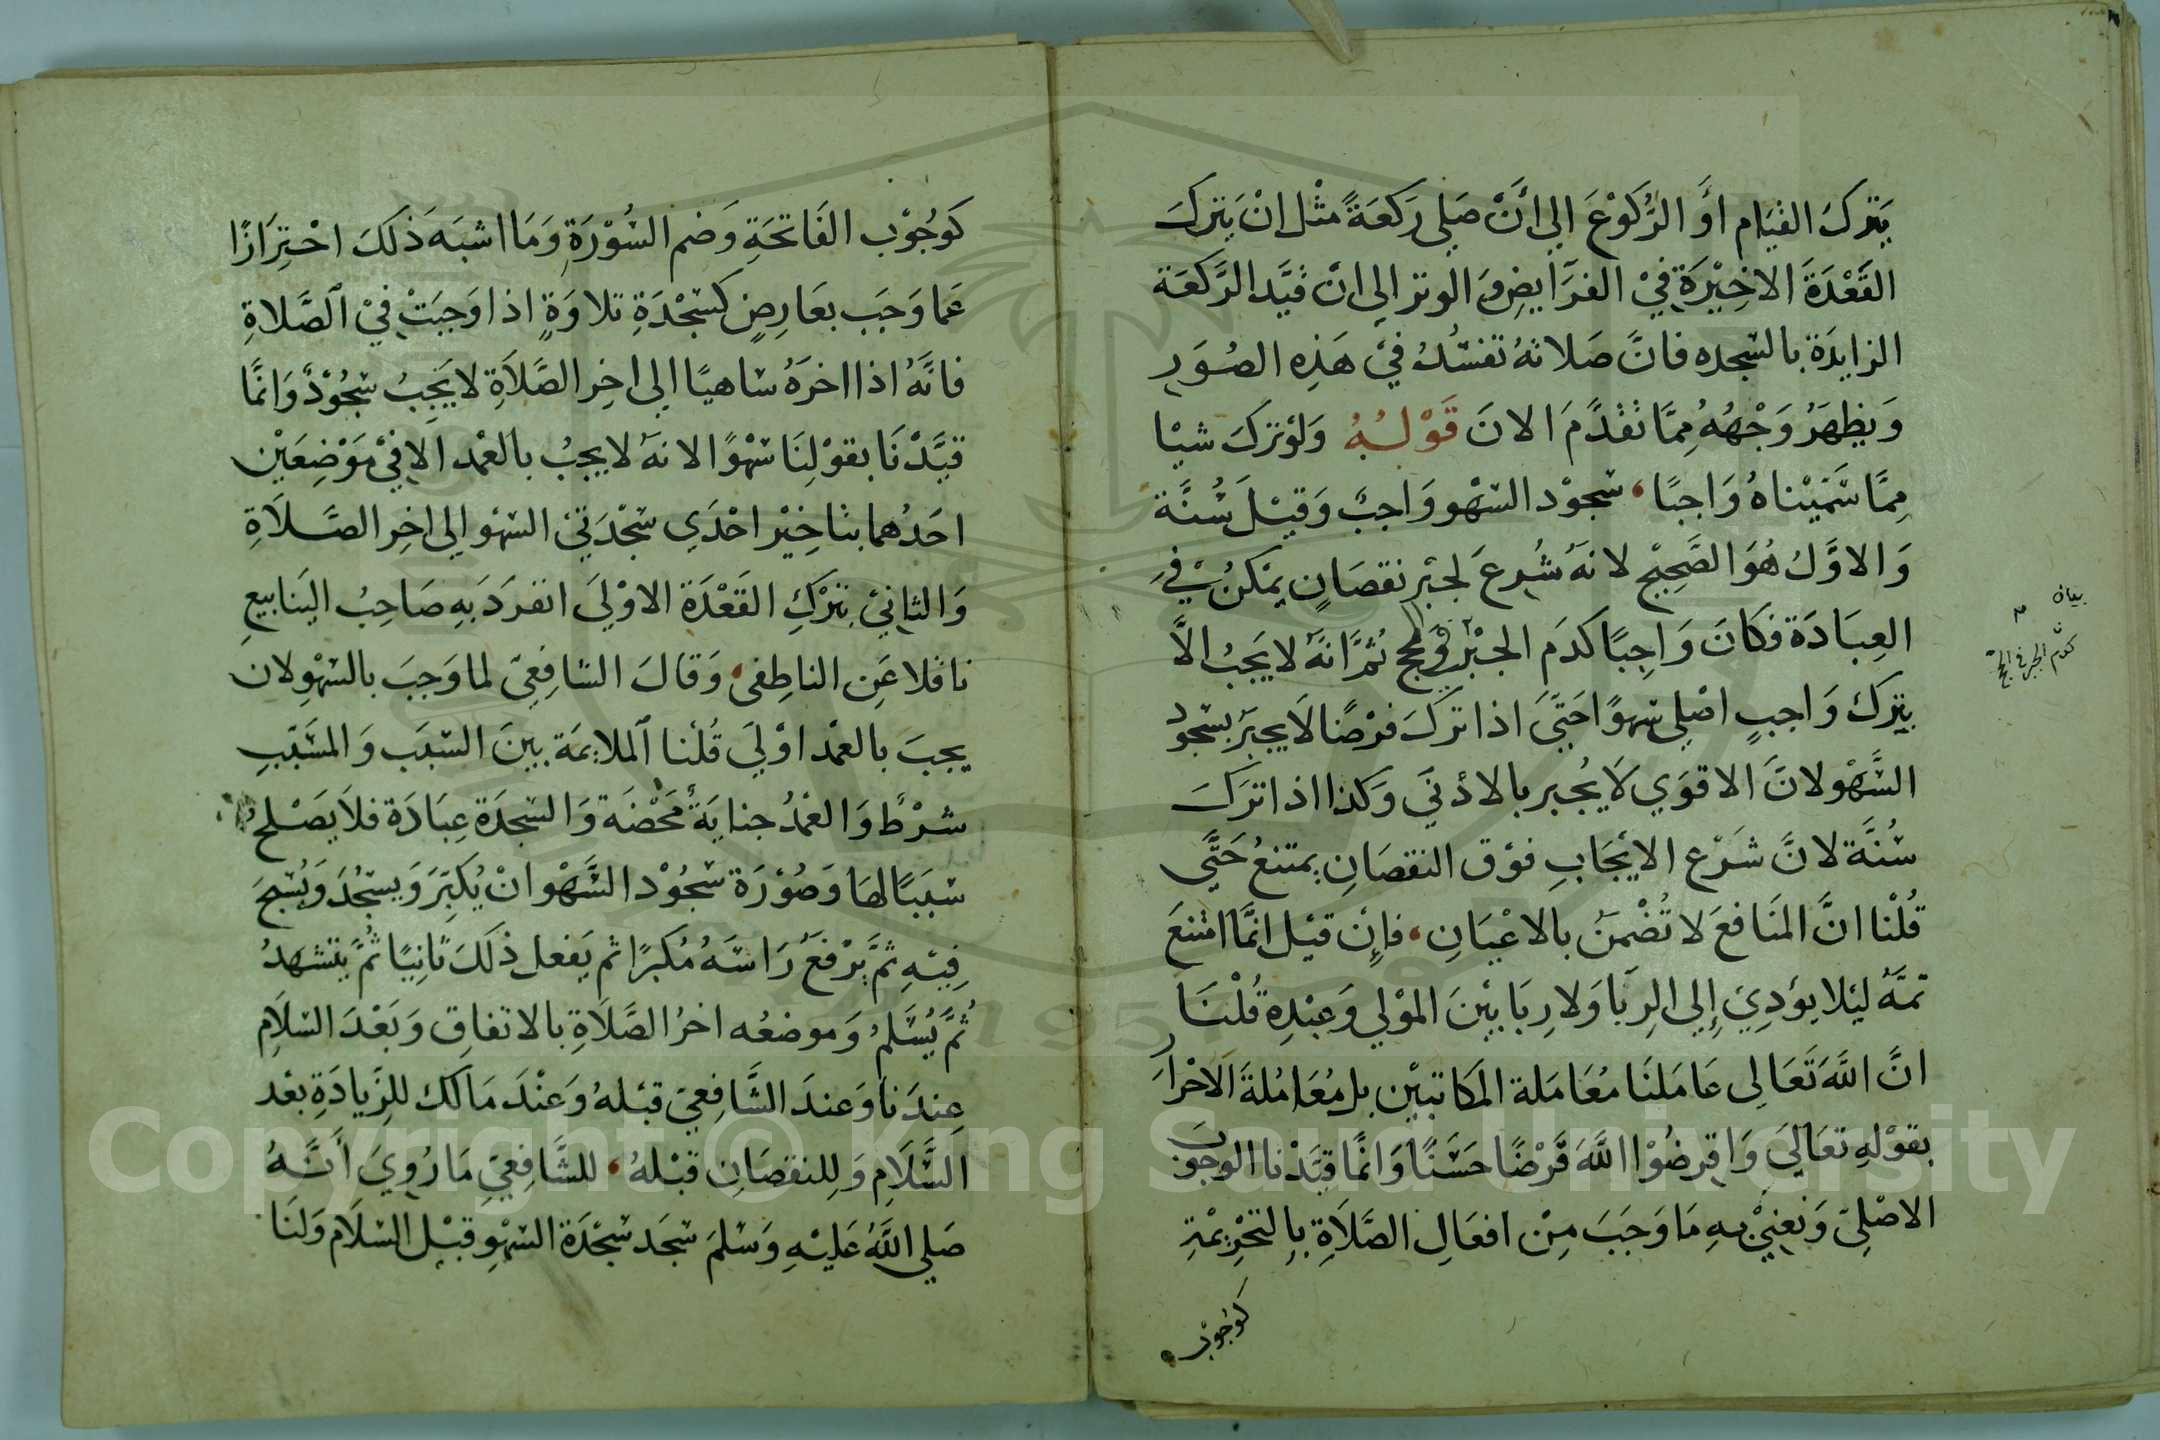 يترك القيام او الركوع الي ان صلي ركعة مثل ان يترك
القعدة الاخيرة في الفرايض والوتر الي ان قيد الركعة
الزايدة بالسجده فان صلاته تفسد في هذه الصور
ويظهر وجهه مما تقدم الان قوله ولو ترك شيا
مما سميناه واجبا سجود السهو واجب وقيل سنة
والاول هو الصحيح لانه شرع لجبر نقصان يمكن في
العبادة فكان واجبا كدم الجبر في الحج ثم انه لا يجب الا
بترك واجب اصلي سهوا حتي اذا ترك فرضا لا يجبر بسجود
السهو لان الاقوي لا يجبر بالادني وكذا اذا ترك
سنة لان شرع الايجاب فوق النقصان يمتنع حتي
قلنا ان المنافع لا تضمن بالاعيان فإن قيل انما امتنع
ثمه ليلا يؤدي إلي الربا ولا ربا بين المولي وعبده قلنا
ان الله تعالي عاملنا معاملة المكاتبين بل معاملة الاحرار
بقوله تعالي واقرضوا الله قرضا حسنا وانما قيدنا الوجوب
الاصلي ونعني به ما وجب من افعال الصلاة بالتحريمة
كوجوب
بيان
كدم الجبر في الحج
كوجوب الفاتحة وضم السورة وما اشبه ذلك احترازا
عما وجب بعارض كسجدة تلاوة اذا وجبت في الصلاة
فانه اذا اخره ساهيا الي اخر الصلاة لا يجب سجود وانما
قيدنا بقولنا سهوا لانه لا يجب بالعمد الا في موضعين
احدهما بتاخير احدي سجدتي السهو الي اخر الصلاة
والثاني بترك القعدة الاولي انفرد به صاحب الينابيع
ناقلا عن الناطفي وقال الشافعي لما وجب بالسهو لان
يجب بالعمد اولي قلنا الملايمة بين السبب والمسبب
شرط والعمد جناية محضة والسجدة عبادة فلا يصلح
سببا لها وصورة سجود السهو ان يكبر ويسجد ويسبح
فيه ثم يرفع راسه مكبرا ثم يفعل ذلك ثانيا ثم يتشهد
ثم يسلم وموضعه اخر الصلاة بالاتفاق وبعد السلام
عندنا وعند الشافعي قبله وعند مالك للزيادة بعد
السلام وللنقصان قبله للشافعي ما روي أنه
صلي الله عليه وسلم سجد سجدة السهو قبل السلام ولنا
Copyright © King Saud University
1957